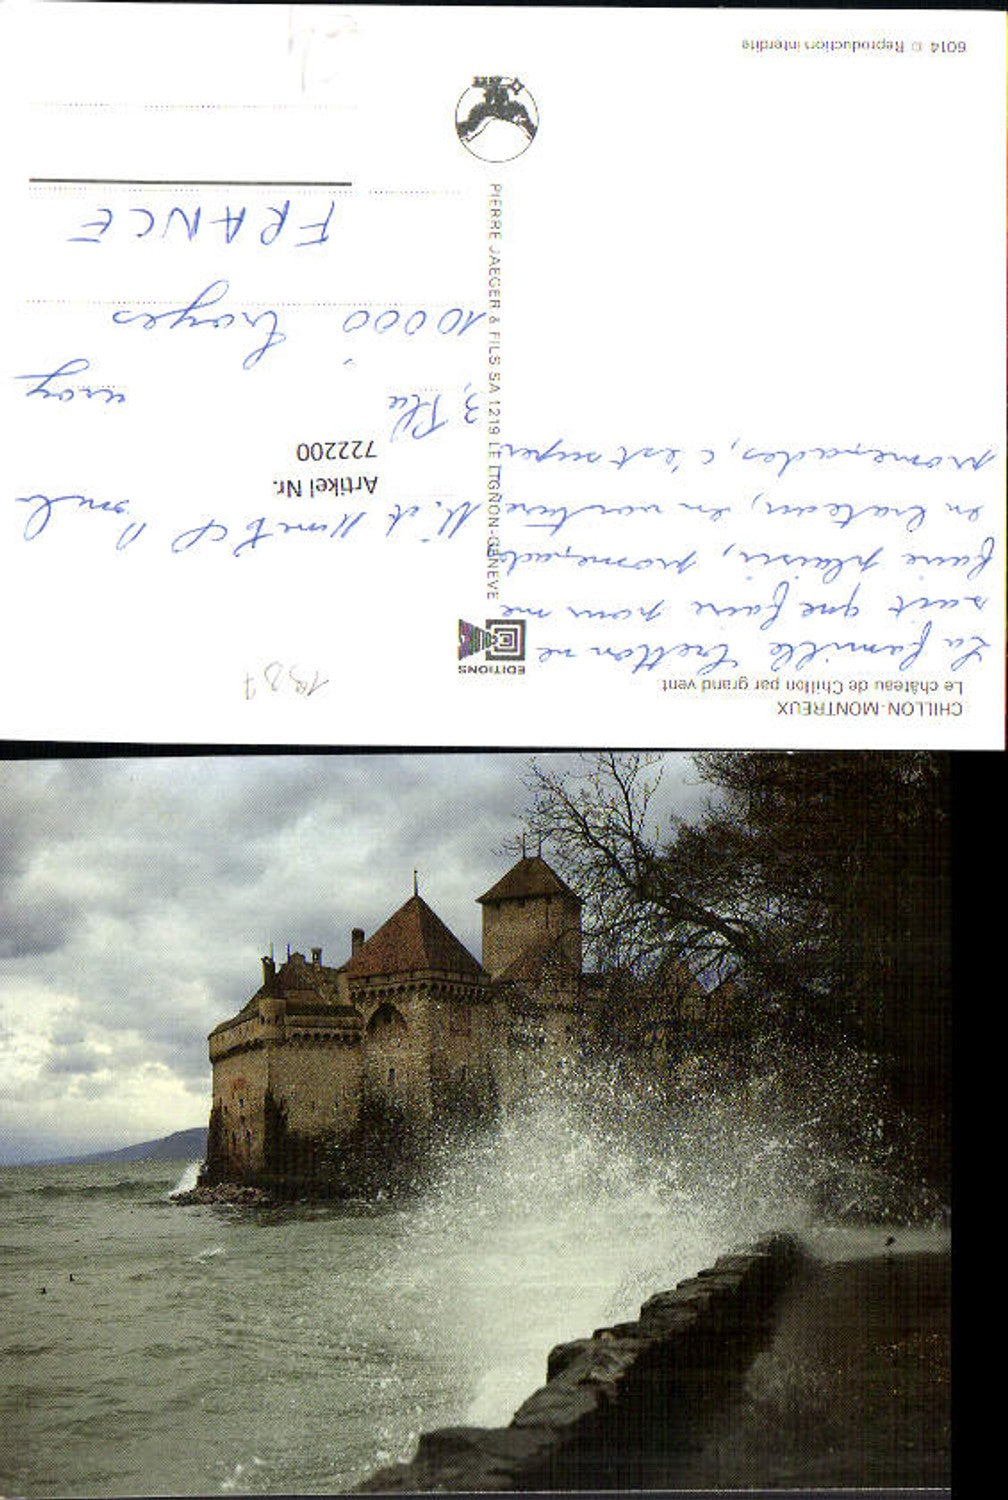 CHILLON-MONTREUX
Le château de Chillon par grand vent
La famille Cretton ne
sait que faire pour me
faire plaisir, promenade
en bateau, en voiture
promenades, c'est super.
EDITIONS
PIERRE JAEGER & FILS SA 1219 LE LIGNON-GENEVE
6014 © Reproduction interdite
1987
M. et
Artikel Nr.
722200
3,
10000 Troyes
FRANCE